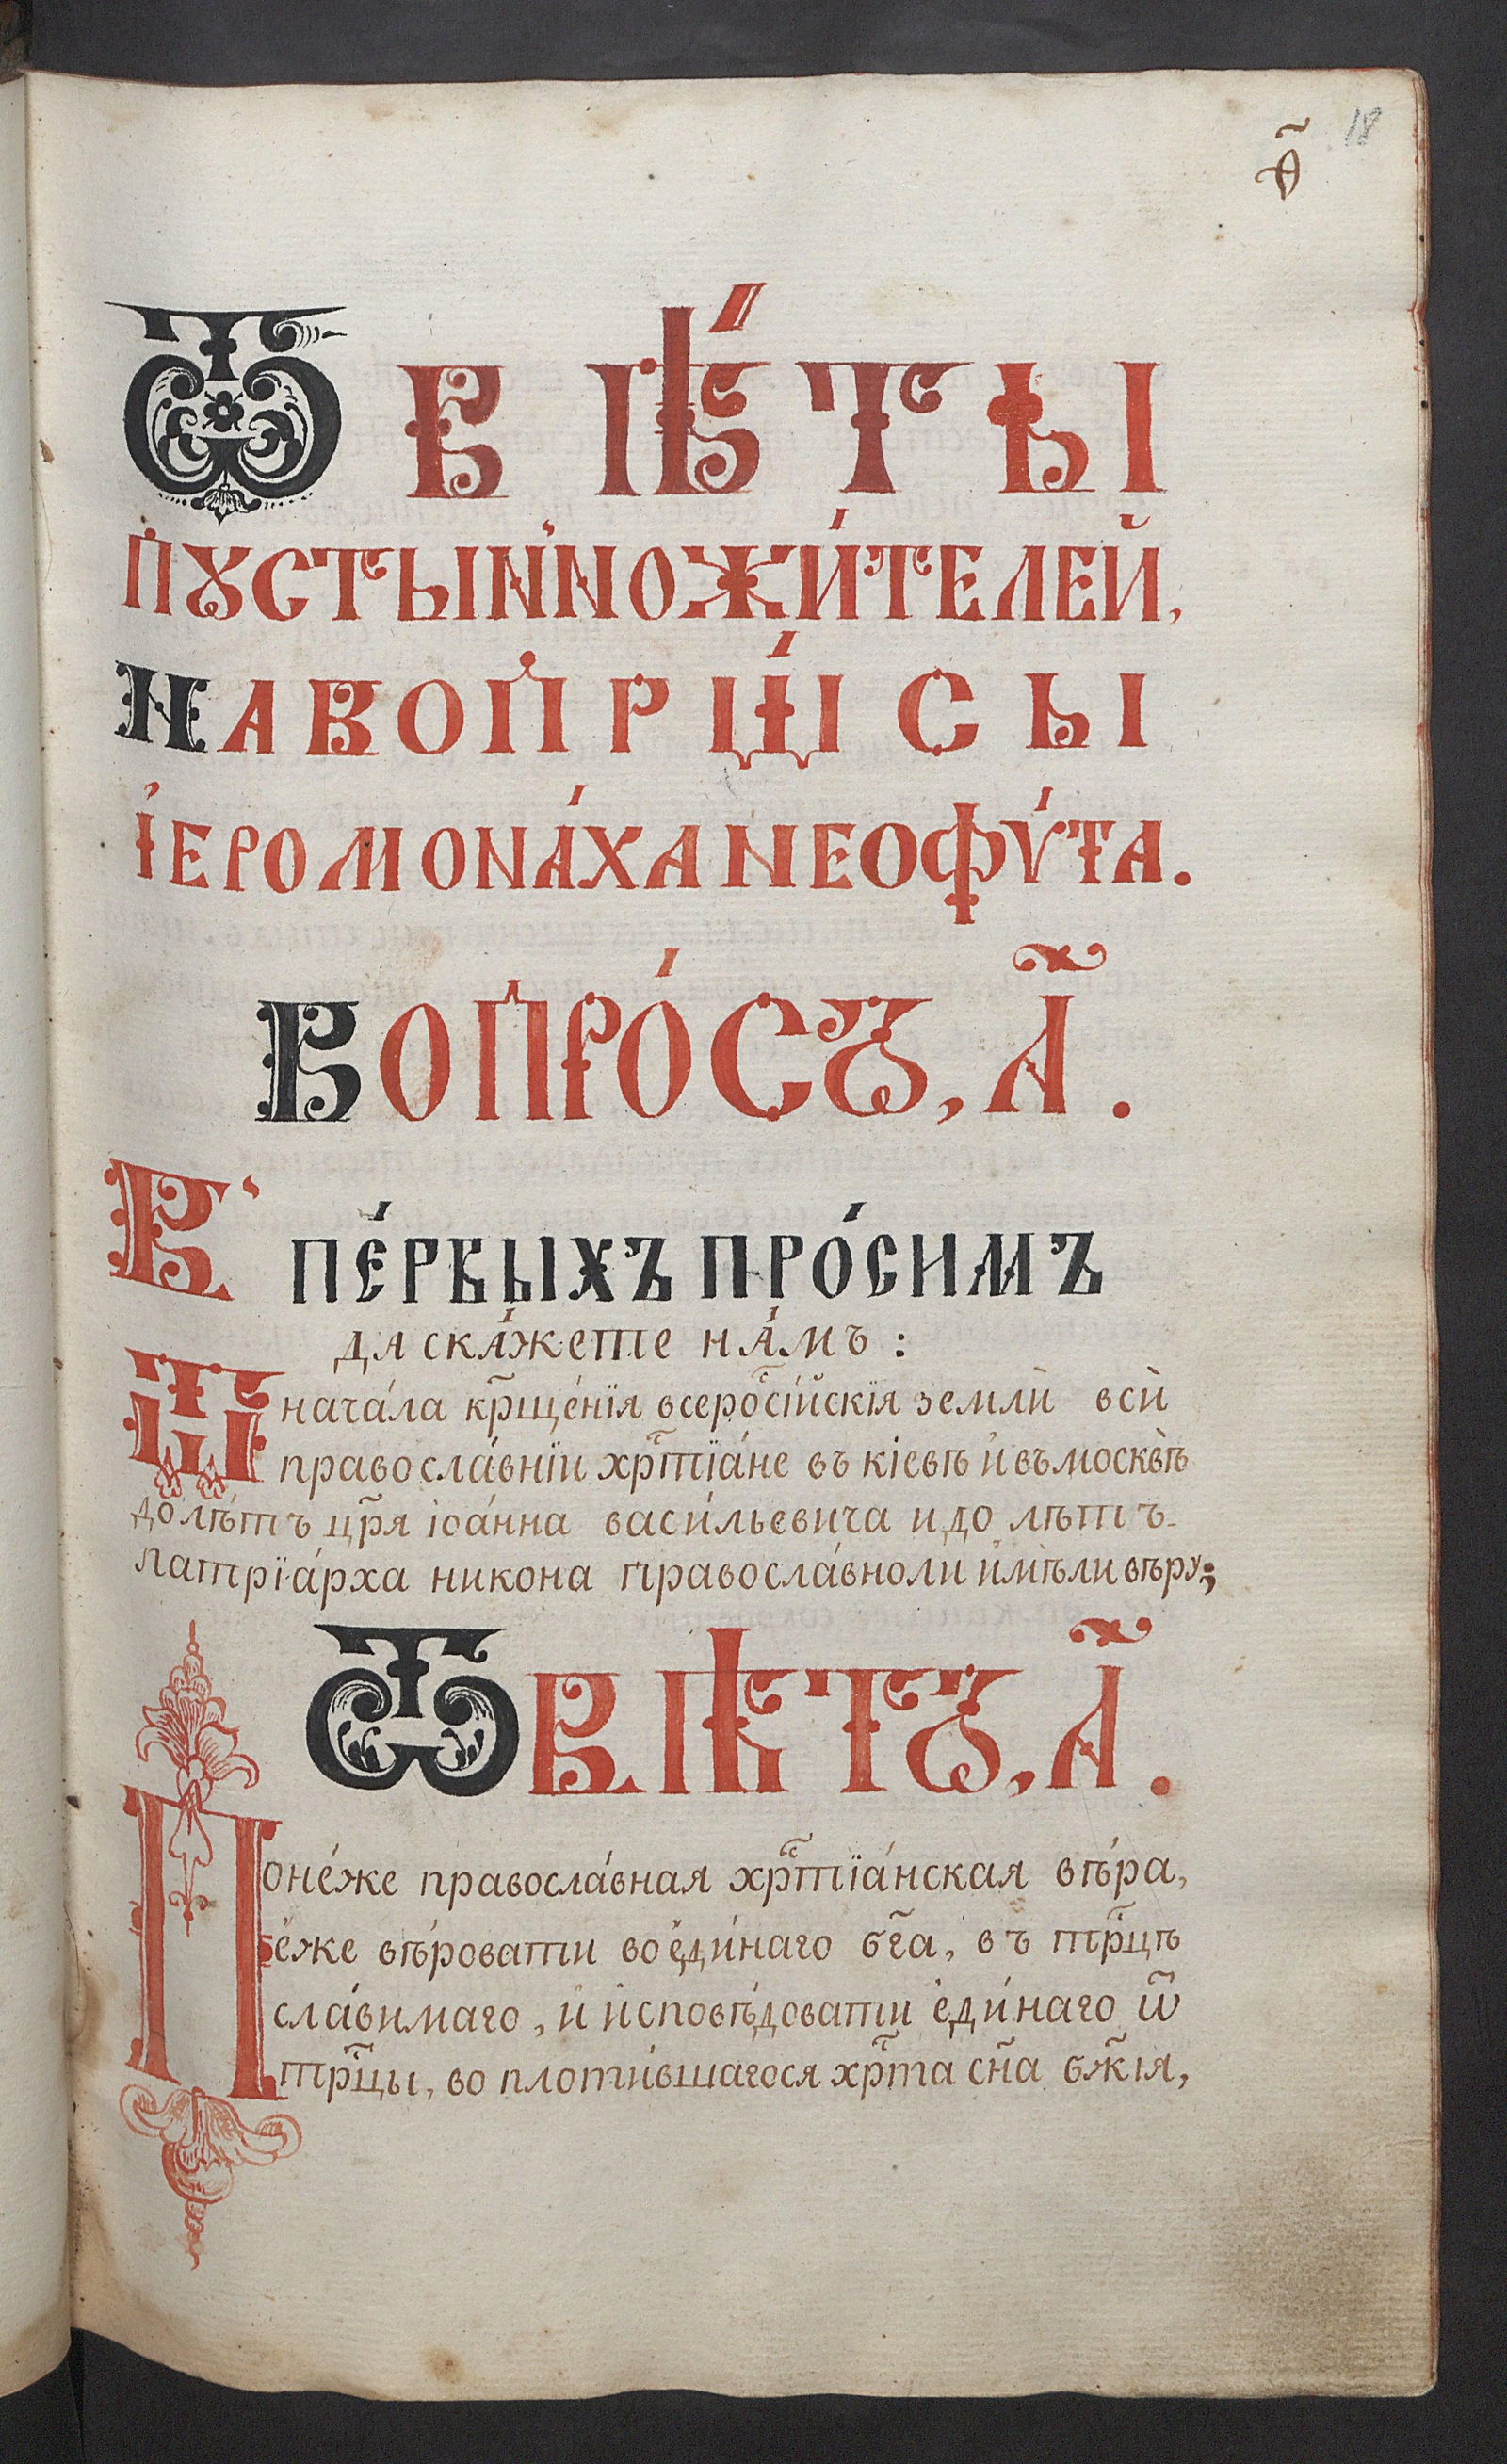 18
ѳ҃
Ѿвѣ́ты
пꙋсты́нножи́телей,
на вопрѡ́сы
і҆еромона́ха неофѵ́та.
Вопро́съ, а҃.
В̾ пе́рвыхъ про́симъ
да ска́жете на́мъ :
Ѿ нача́ла кр҃ще́нїѧ всерос҇і́йскїѧ земли̇̀ вси̇̀
правосла́внїи хрⷭ҇тїа́не въ кіевѣ и҆ въ москвѣ̀
до лѣ́тъ цр҃ѧ іѡа́нна васи́льевича и до лѣтъ
патрїа́рха никона правосла́вно ли и҆мѣ́ли вѣру;
Ѿвѣтъ, а҃.
Поне́же правосла́внаѧ хрⷭ҇тїа́нскаѧ вѣ́ра,
е́же вѣ́ровати во е҆ди́наго бг҃а, въ трⷪ҇цѣ
сла́вимаго, и҆ и҆сповѣ́довати е҆ди́наго ѿ
трⷪ҇цы, во плоти́вшагосѧ хрⷭ҇та сн҃а бж҃іѧ,